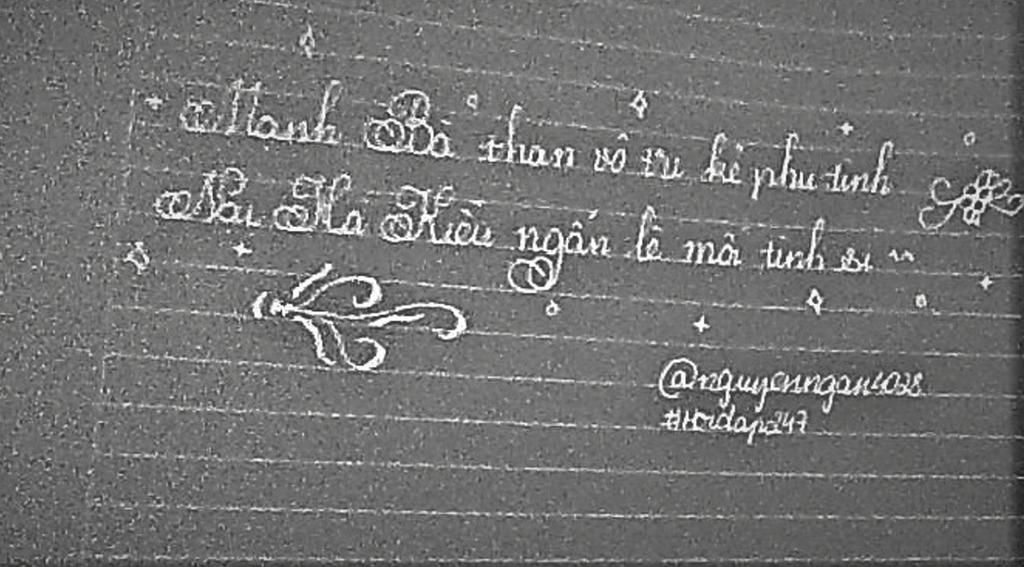 Mạnh Bà than vô tư kẻ phụ tình
Nại Hạ Kiều ngấn lệ mối tình si
@nguyenngan4028
#Hoidap247